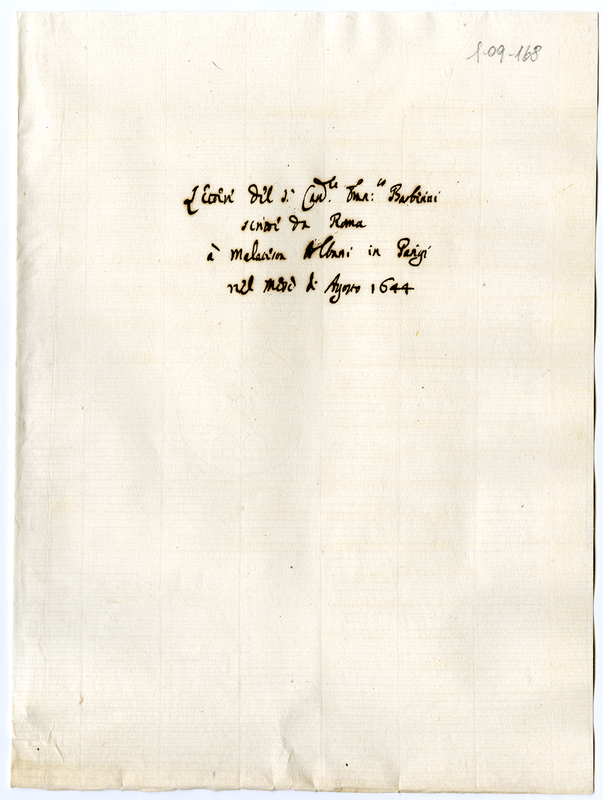 1-09-168
Lettere del S.r Card.le Fran.co Barberini
scritte da Roma
à Malatesta Albani in Parigi
nel mese di Agosto 1644